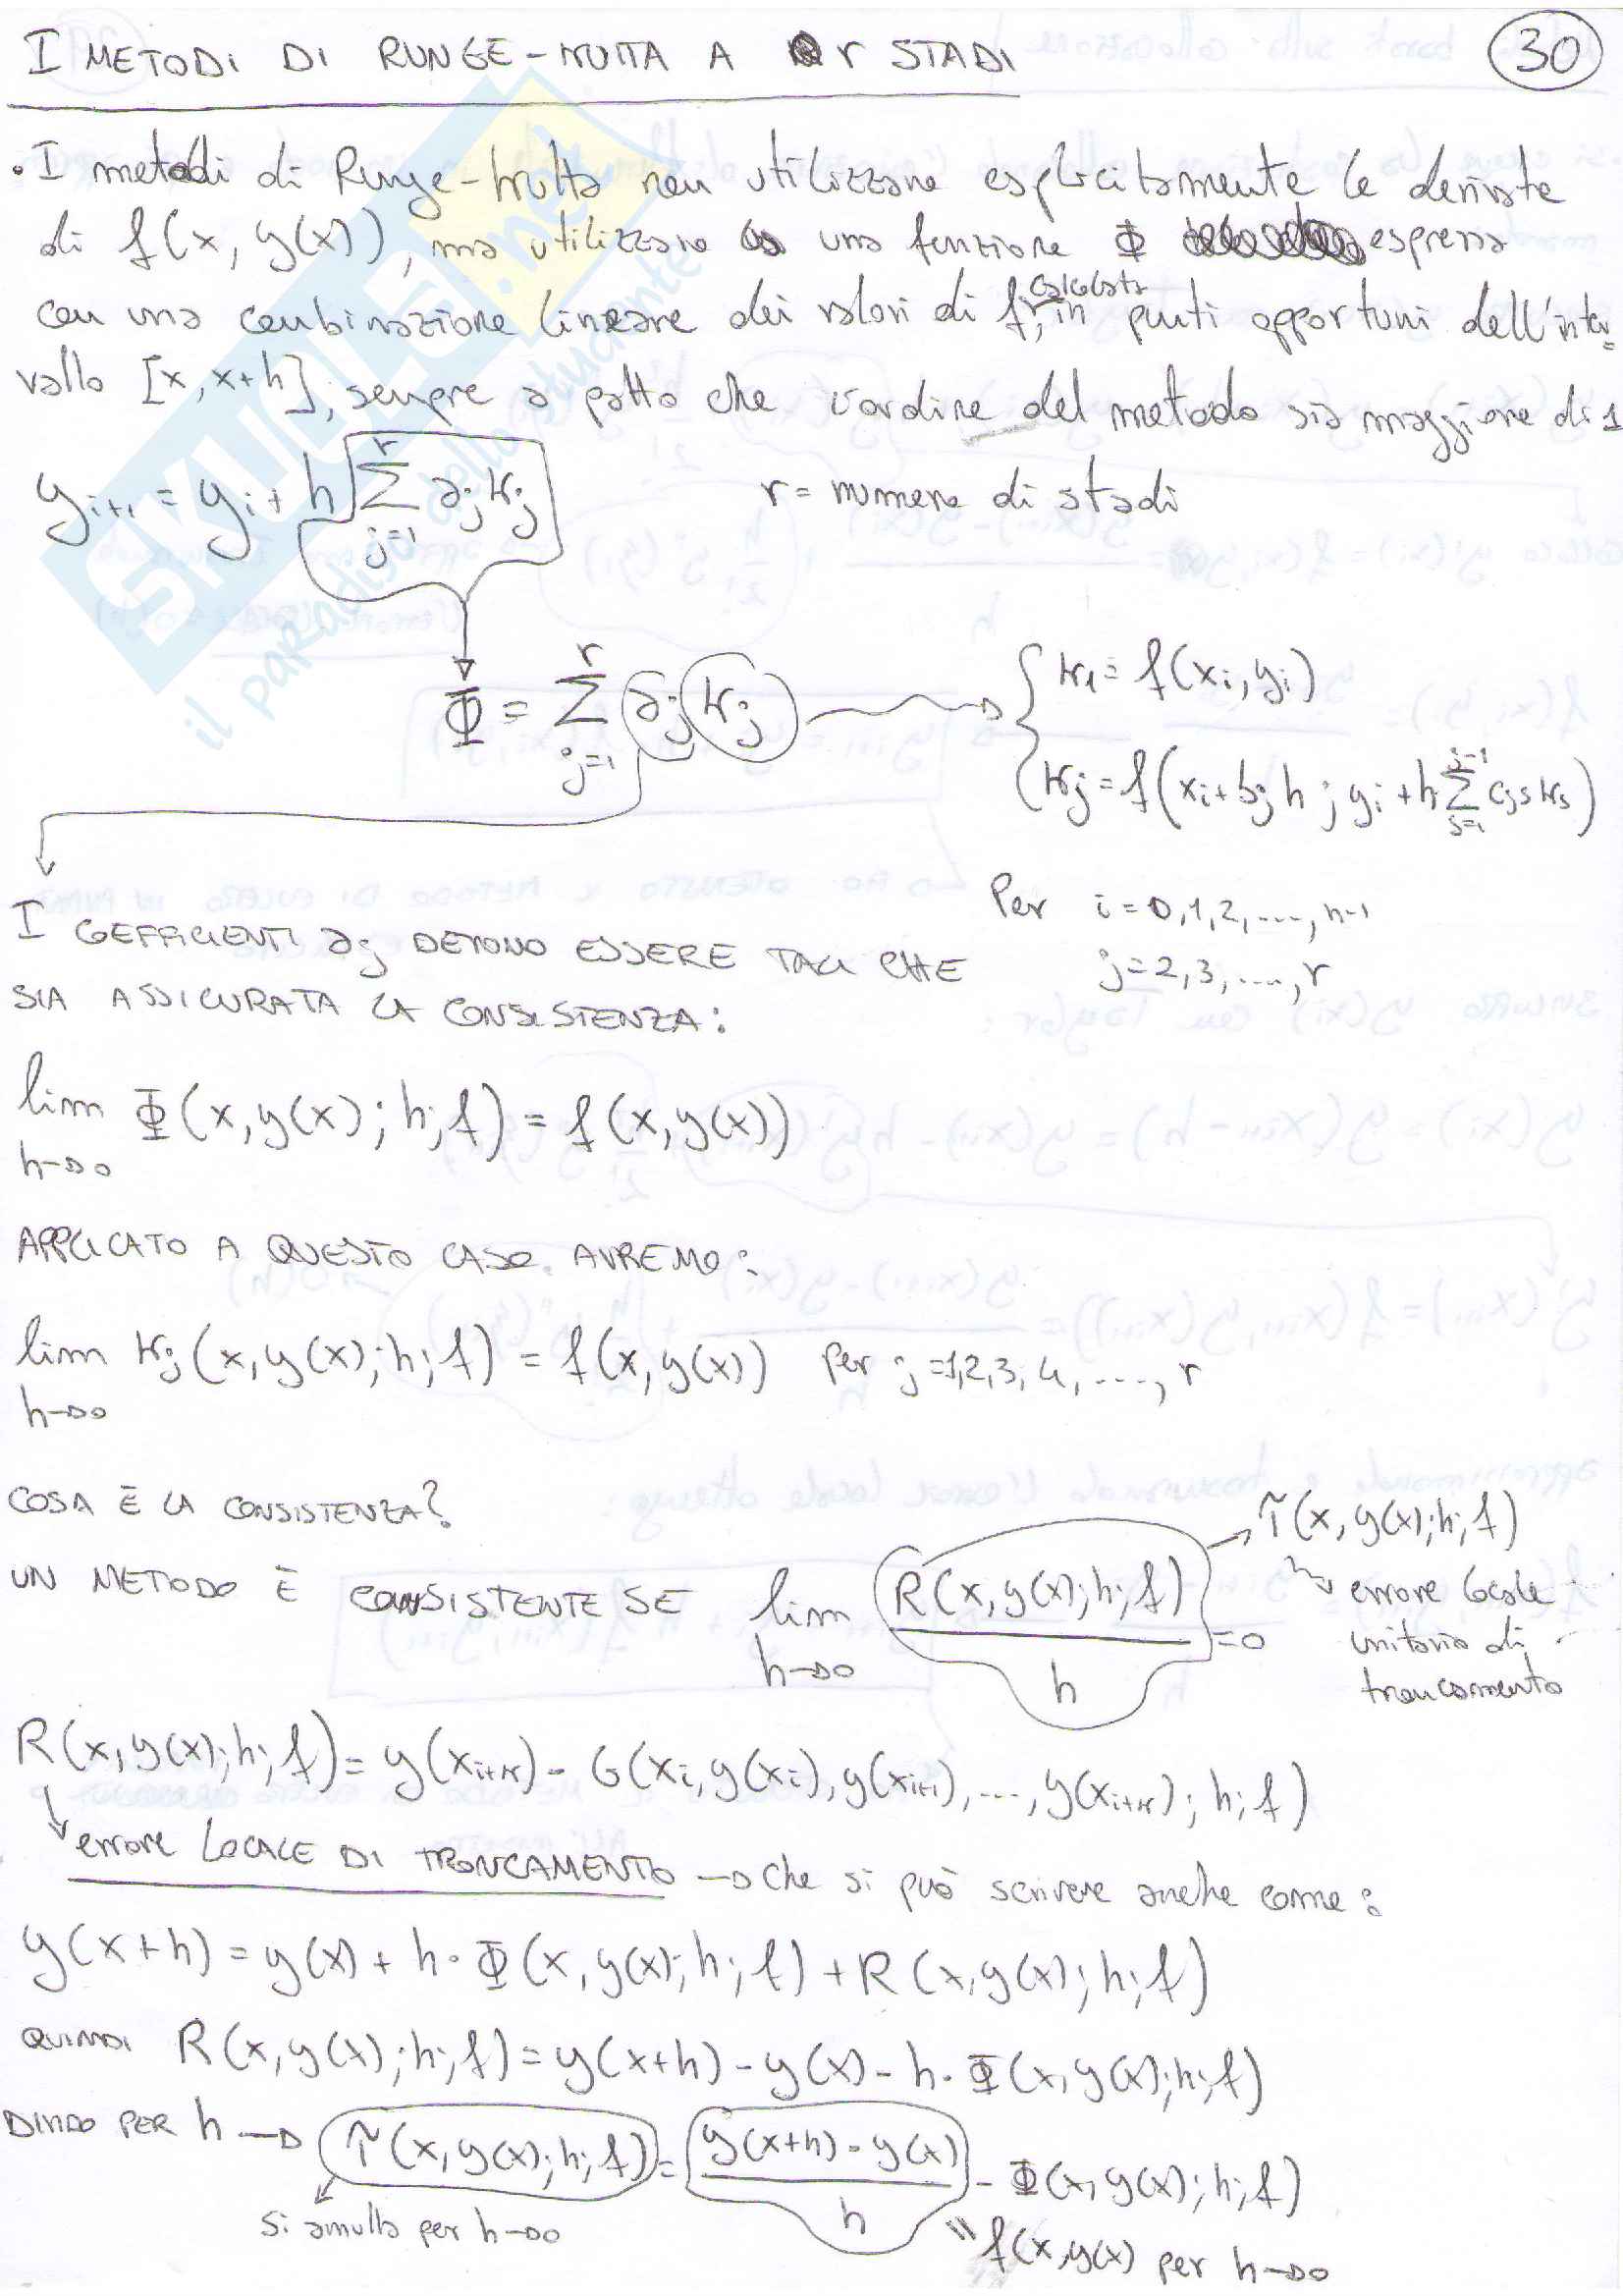 I METODI DI RUNGE-KUTTA A r STADI
30
• I metodi di Runge-Kutta non utilizzano esplicitamente le derivate
di f(x, y(x)), ma utilizzano una funzione Φ espressa
con una combinazione lineare dei valori di f, calcolata in punti opportuni dell'inter=
vallo [x, x+h], sempre a patto che l'ordine del metodo sia maggiore di 1
y_{i+1} = y_i + h Σ_{j=1}^{r} a_j K_j    r = numero di stadi
Φ = Σ_{j=1}^{r} a_j K_j → { K_1 = f(x_i, y_i)
K_j = f(x_i + b_j h ; y_i + h Σ_{s=1}^{j-1} c_{js} K_s)
Per i = 0,1,2,....,n-1
j = 2,3,....,r
I COEFFICIENTI a_j DEVONO ESSERE TALI CHE
SIA ASSICURATA LA CONSISTENZA:
lim_{h→0} Φ(x, y(x); h; f) = f(x, y(x))
APPLICATO A QUESTO CASO AVREMO:
lim_{h→0} K_j(x, y(x); h; f) = f(x, y(x)) per j=1,2,3,4,....,r
COSA È LA CONSISTENZA?
UN METODO È CONSISTENTE SE lim_{h→0} R(x, y(x); h; f)/h = 0
→ τ(x, y(x); h; f)
↳ errore locale
unitario di
troncamento
R(x, y(x); h; f) = y(x_{i+k}) - G(x_i, y(x_i), y(x_{i+1}), ..., y(x_{i+k}); h; f)
↳ errore LOCALE DI TRONCAMENTO → che si può scrivere anche come:
y(x+h) = y(x) + h · Φ(x, y(x); h; f) + R(x, y(x); h; f)
QUINDI R(x, y(x); h; f) = y(x+h) - y(x) - h · Φ(x, y(x); h; f)
DIVIDO PER h → τ(x, y(x); h; f) = (y(x+h) - y(x))/h - Φ(x, y(x); h; f)
si annulla per h→0
" f(x, y(x)) per h→0
SKUOLA.net
il paradiso dello studente